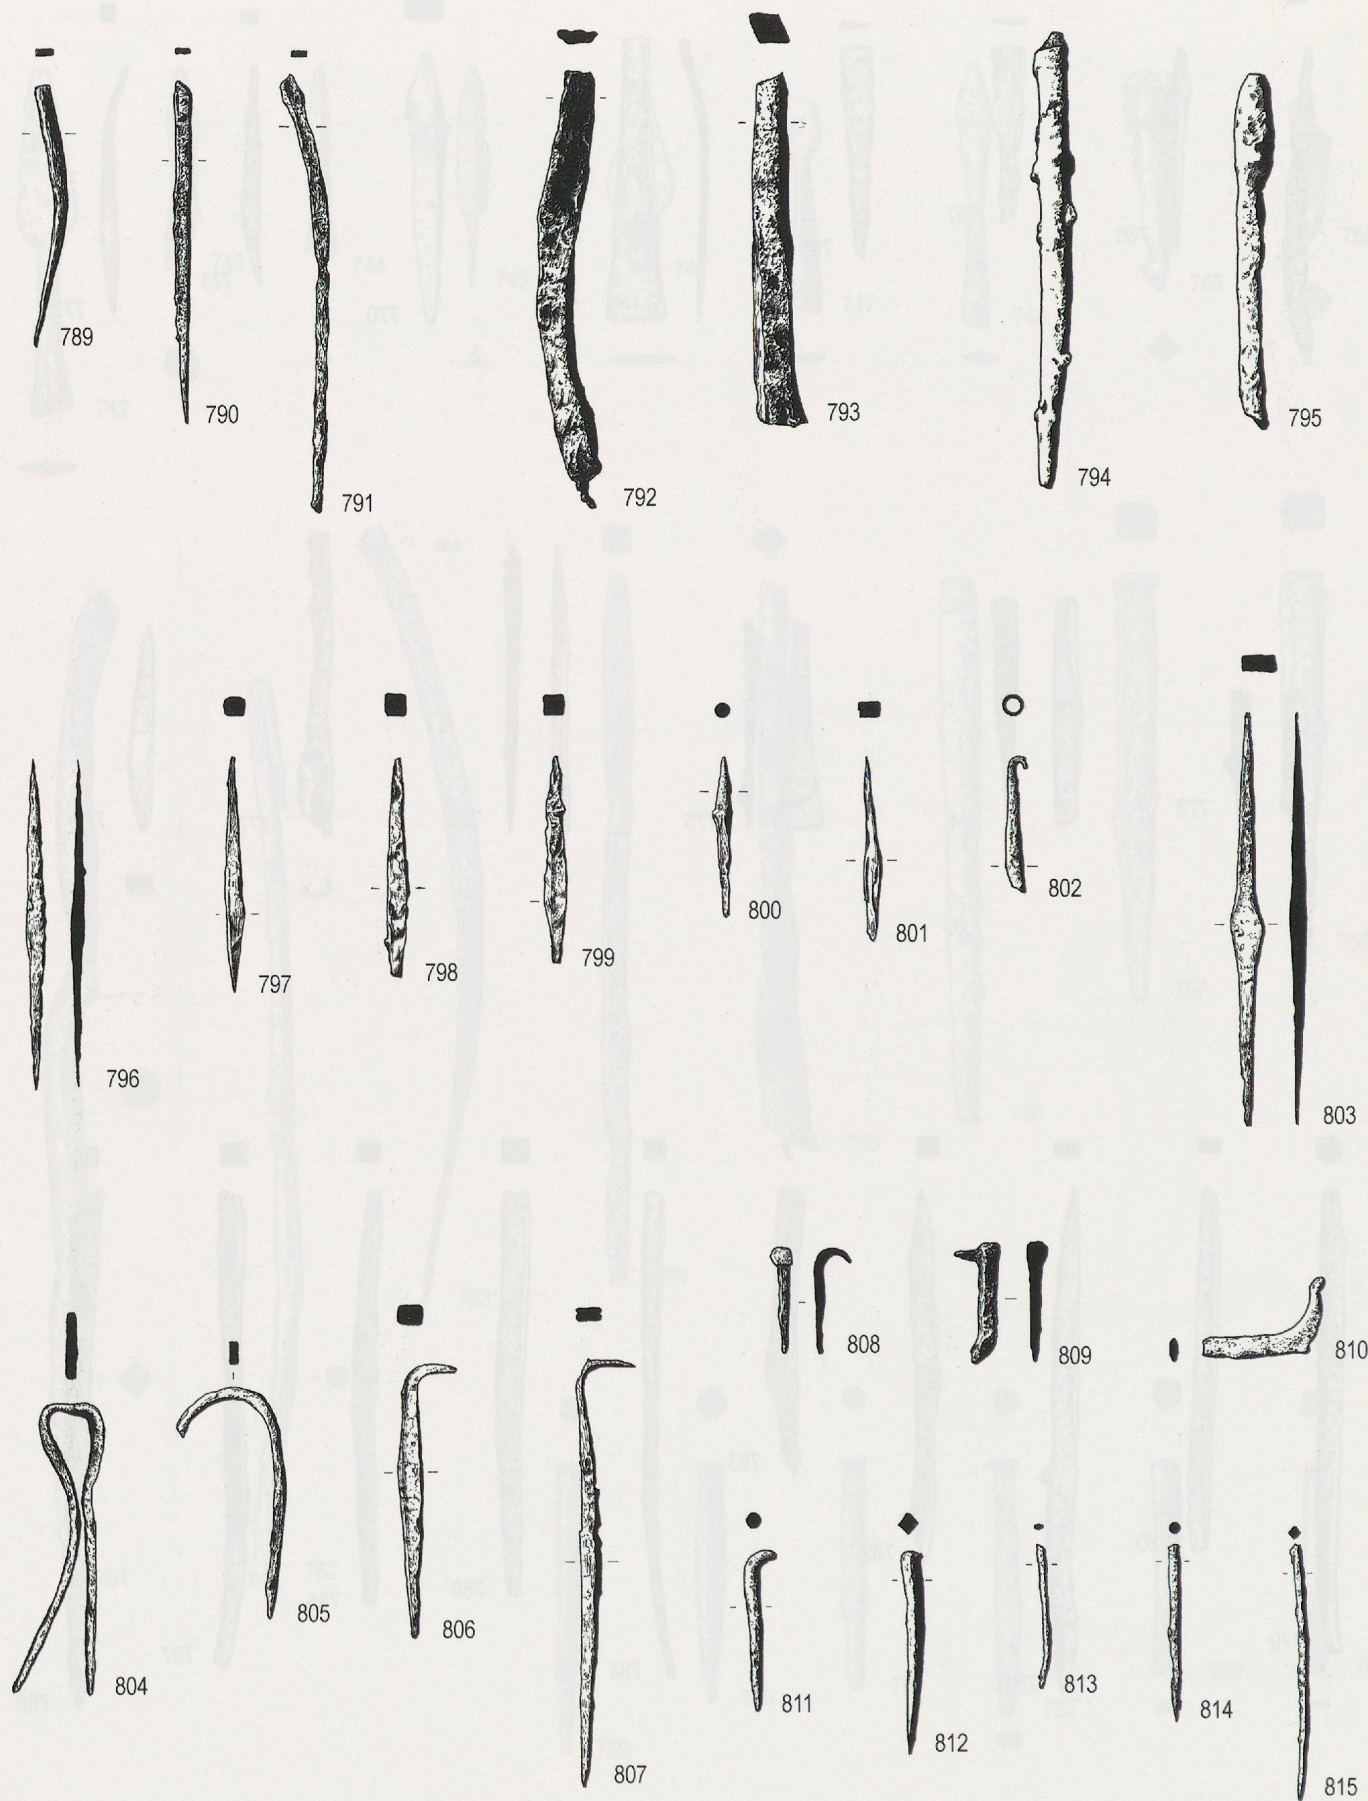 789
790
791
792
793
794
795
796
797
798
799
800
801
802
803
804
805
806
807
808
809
810
811
812
813
814
815